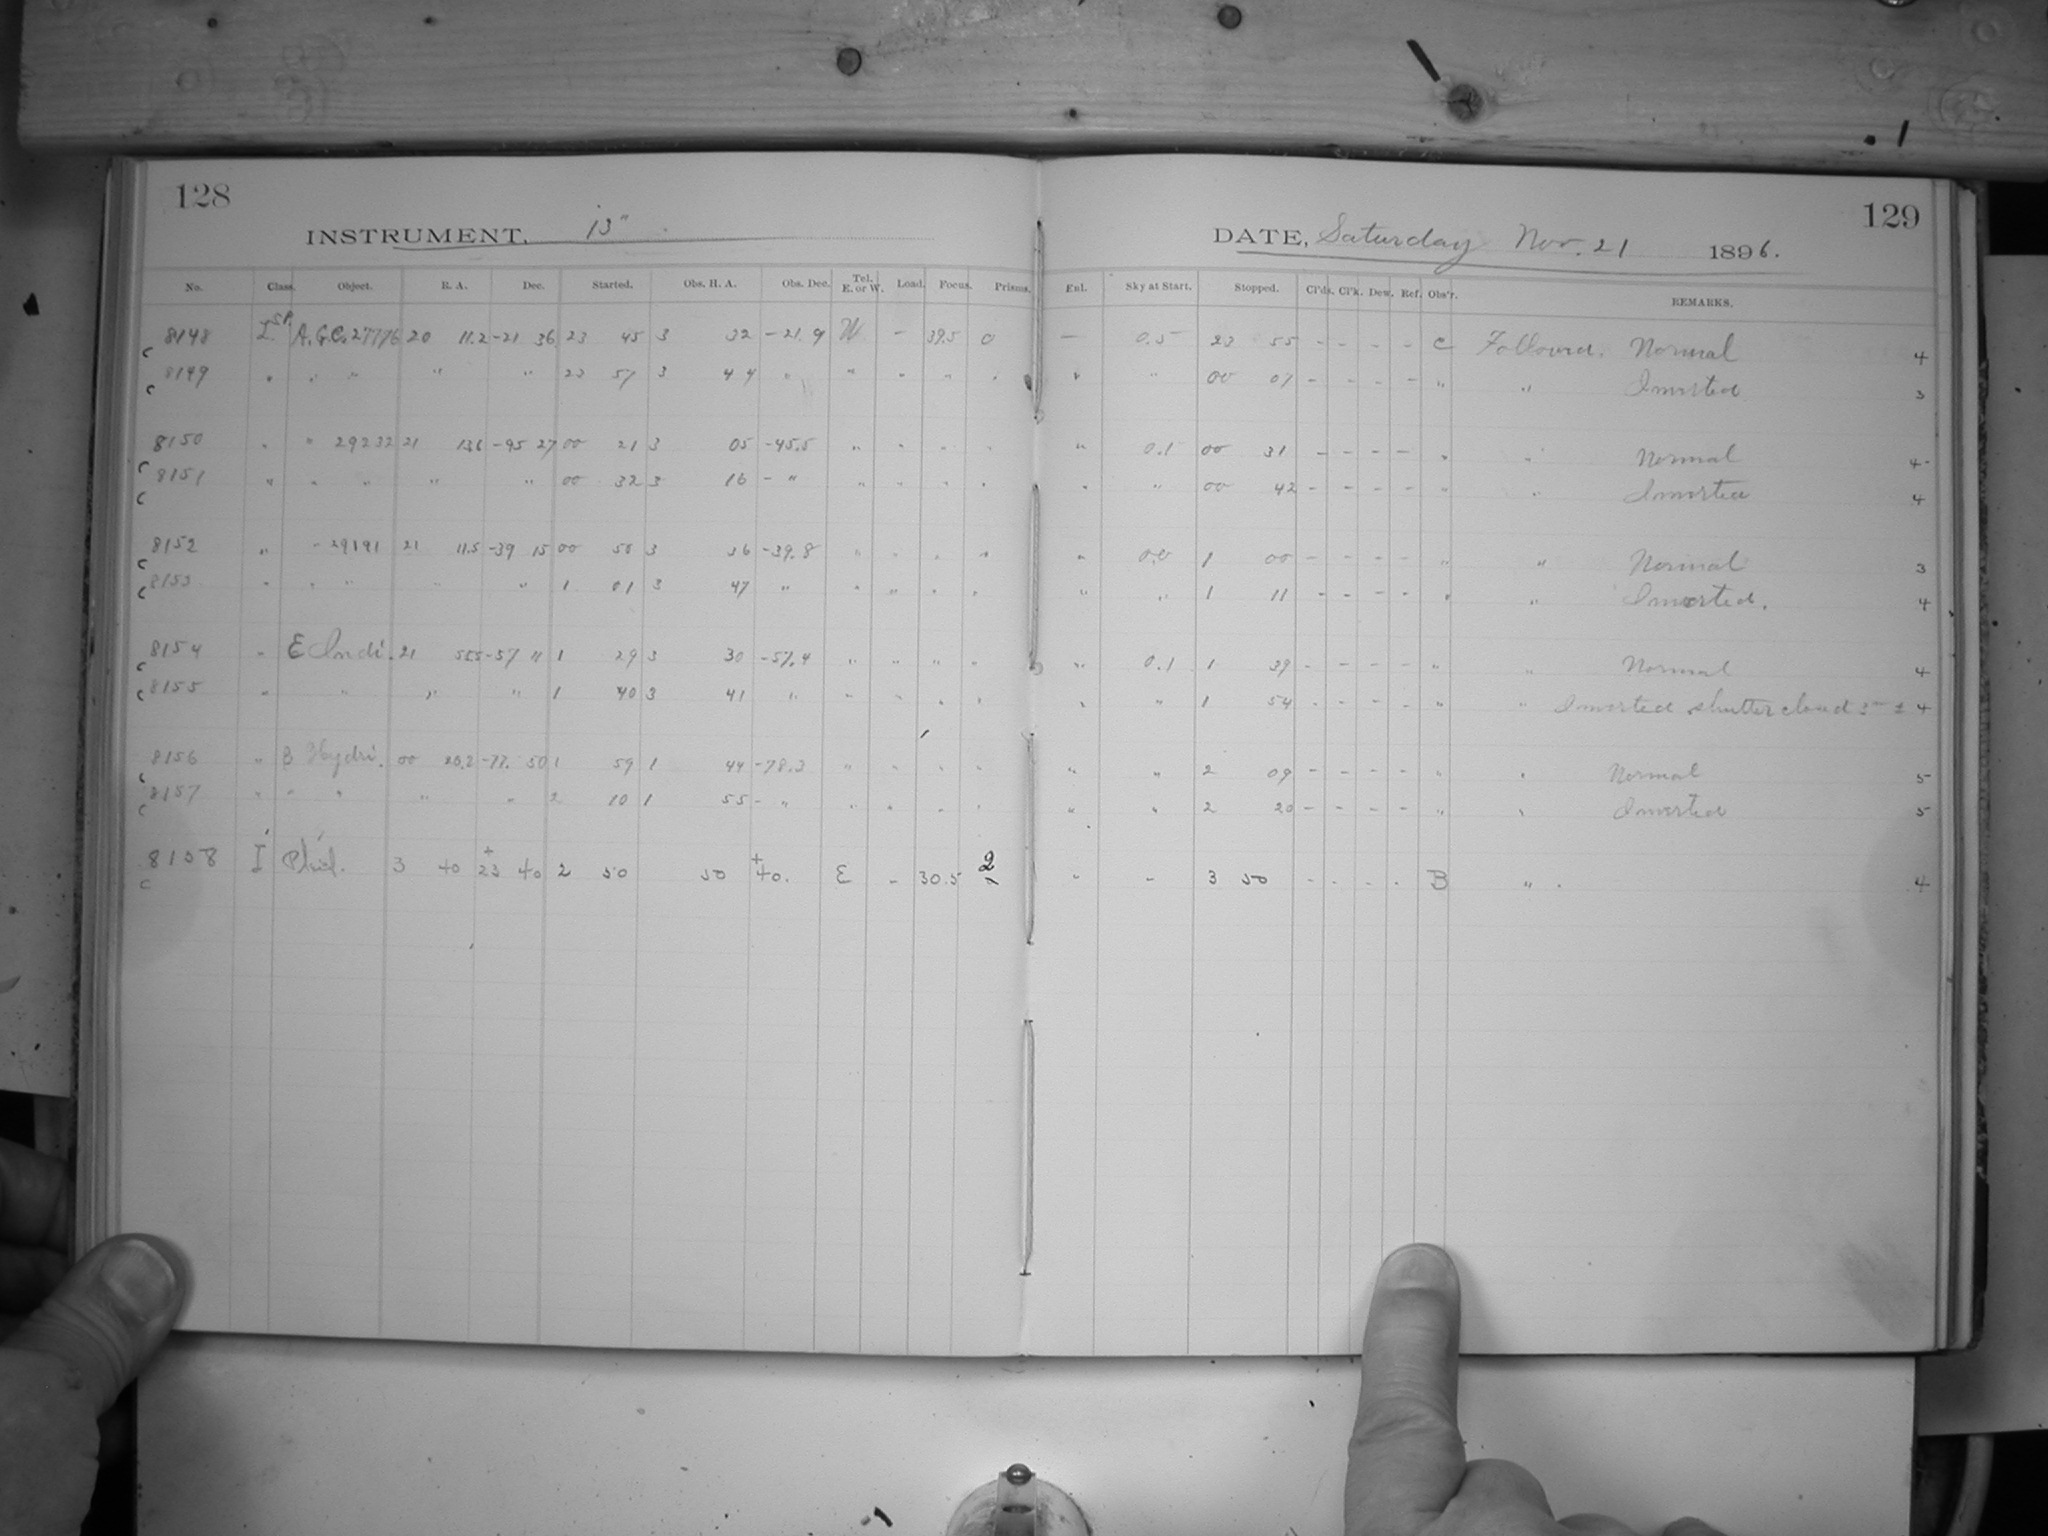 128
INSTRUMENT, 13"
No. Class. Object. R. A. Dec. Started. Obs. H. A. Obs. Dec. Tel. E. or W. Load. Focus. Prisms.
8148 I. SP. A.G.C. 27776 20 11.2 -21 36 23 45 3 32 -21.9 W - 39.5 0
8149 " " " " " 23 57 3 44 " " " " "
8150 " " 29232 21 13.6 -45 27 00 21 3 05 -45.5 " " " "
8151 " " " " " 00 32 3 16 - " " " " "
8152 " " 29191 21 11.5 -39 15 00 50 3 36 -39.8 " " " "
8153 " " " " " 1 01 3 47 " " " " "
8154 " E Indi. 21 55.5 -57 11 1 29 3 30 -57.4 " " " "
8155 " " " " 1 40 3 41 " " " " "
8156 " B Hydri. 00 20.2 -77. 50 1 59 1 44 -78.3 " " " "
8157 " " " " " 2 10 1 55 - " " " " "
8158 I Pleid. 3 40 +23 40 2 50 50 +40. E - 30.5 2
129
DATE, Saturday Nov. 21 1896.
Enl. Sky at Start. Stopped. Cl'ds. Cl'k. Dew. Ref. Obs'r. REMARKS.
- 0.5 23 55 - - - - C Followed. Normal 4
" " 00 07 - - - - " " Inverted 3
" 0.1 00 31 - - - - " " Normal 4
" " 00 42 - - - - " " Inverted 4
" 0.0 1 00 - - - - " " Normal 3
" " 1 11 - - - - " " Inverted. 4
" 0.1 1 39 - - - - " " Normal 4
" " 1 54 - - - - " " Inverted shutter closed 4
" " 2 09 - - - - " " Normal 5
" " 2 20 - - - - " " Inverted 5
" - 3 50 - - - - B " . 4